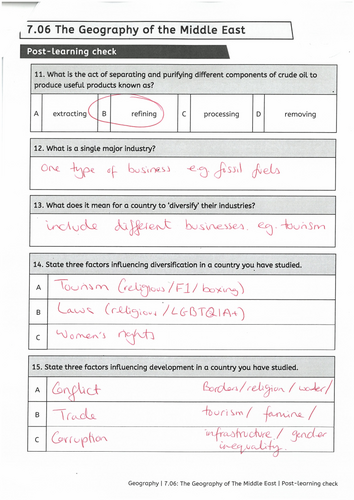 7.06 The Geography of the Middle East
Post-learning check
11. What is the act of separating and purifying different components of crude oil to
produce useful products known as?
A extracting B refining C processing D removing
12. What is a single major industry?
One type of business eg fossil fuels
13. What does it mean for a country to 'diversify' their industries?
include different businesses. eg. tourism
14. State three factors influencing diversification in a country you have studied.
A Tourism (religious/F1/boxing)
B Laws (religious/LGBTQIA+)
C Women's rights
15. State three factors influencing development in a country you have studied.
A Conflict Borders/religion/water/
B Trade tourism/famine/
C Corruption infrastructure/gender
inequality.
Geography | 7.06: The Geography of The Middle East | Post-learning check